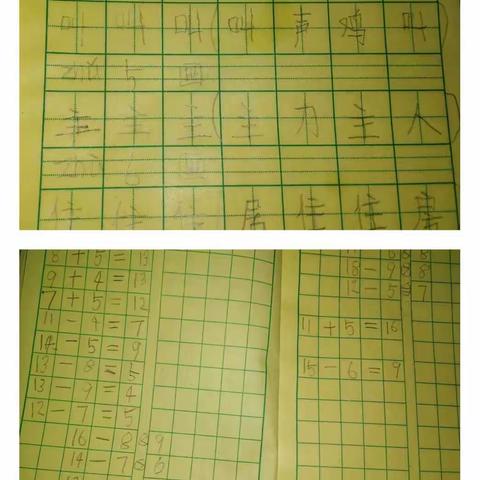 叫 叫 叫 ( 叫 声 鸡 叫 )
5 画
主 主 主 ( 主 力 主 人 )
6 画
住 住 住 居 住 住 房
8 + 5 = 13
9 + 4 = 13
7 + 5 = 12
11 - 4 = 7
14 - 5 = 9
13 - 8 = 5
13 - 9 = 4
12 - 7 = 5
16 - 8 = 9
14 - 7 = 6
18 - 9 = 8
12 - 5 = 7
11 + 5 = 16
15 - 6 = 9